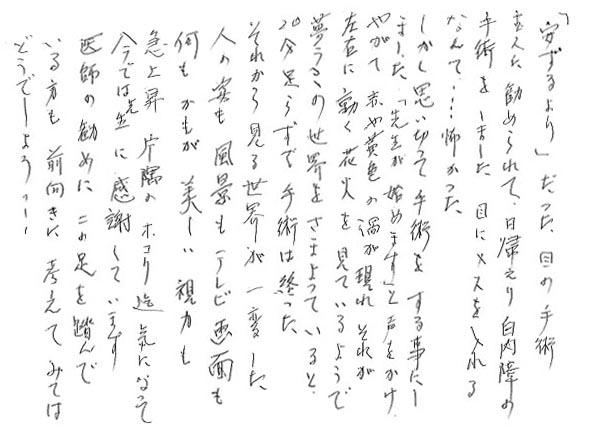 「案ずるより」だった目の手術
主人に勧められて、日帰えり白内障の
手術をしました 目にメスを入れる
なんて・・・怖かった。
しかし思い切って手術をする事にし
ました。「先生が始めます」と声をかけ、
やがて 赤や黄色の渦が現れ それが
左右に動く花火を見ているようで
夢うつつの世界をさまよっていると、
20分足らずで手術は終った
それから見る世界が一変した
人の姿も風景もテレビ画面も
何もかもが 美しい 視力も
急上昇 片隅のホコリ迄気になって
今では先生に感謝しています
医師の勧めに二の足を踏んで
いる方も 前向きに考えてみては
どうでしょうか・・・